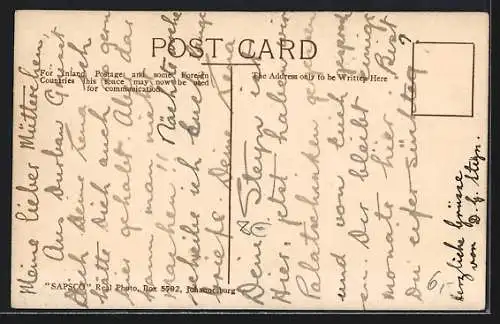 POST CARD
For Inland Postage, and some Foreign
Countries this space may now be used
for communication.
The Address only to be Written Here
Meine lieber Mütterchen
Aus Durban Grüsst
Dich deine Lena. Ich
hätte Dich auch so gern
hier gehabt. Aber das
kann man nicht
machen!! Nächste Woche
schreibe ich Euch lange
briefe. Deine Lena
Dein Steyn ist
Hier, jetzt haben wir
Palatschinken
und von Euch
Der bleibt einige
monate hier. Bist
Du eifersüchtig?
herzliche Grüsse
von D. h. Steyn.
6,-
"SAPSCO" Real Photo, Box 5792, Johannesburg